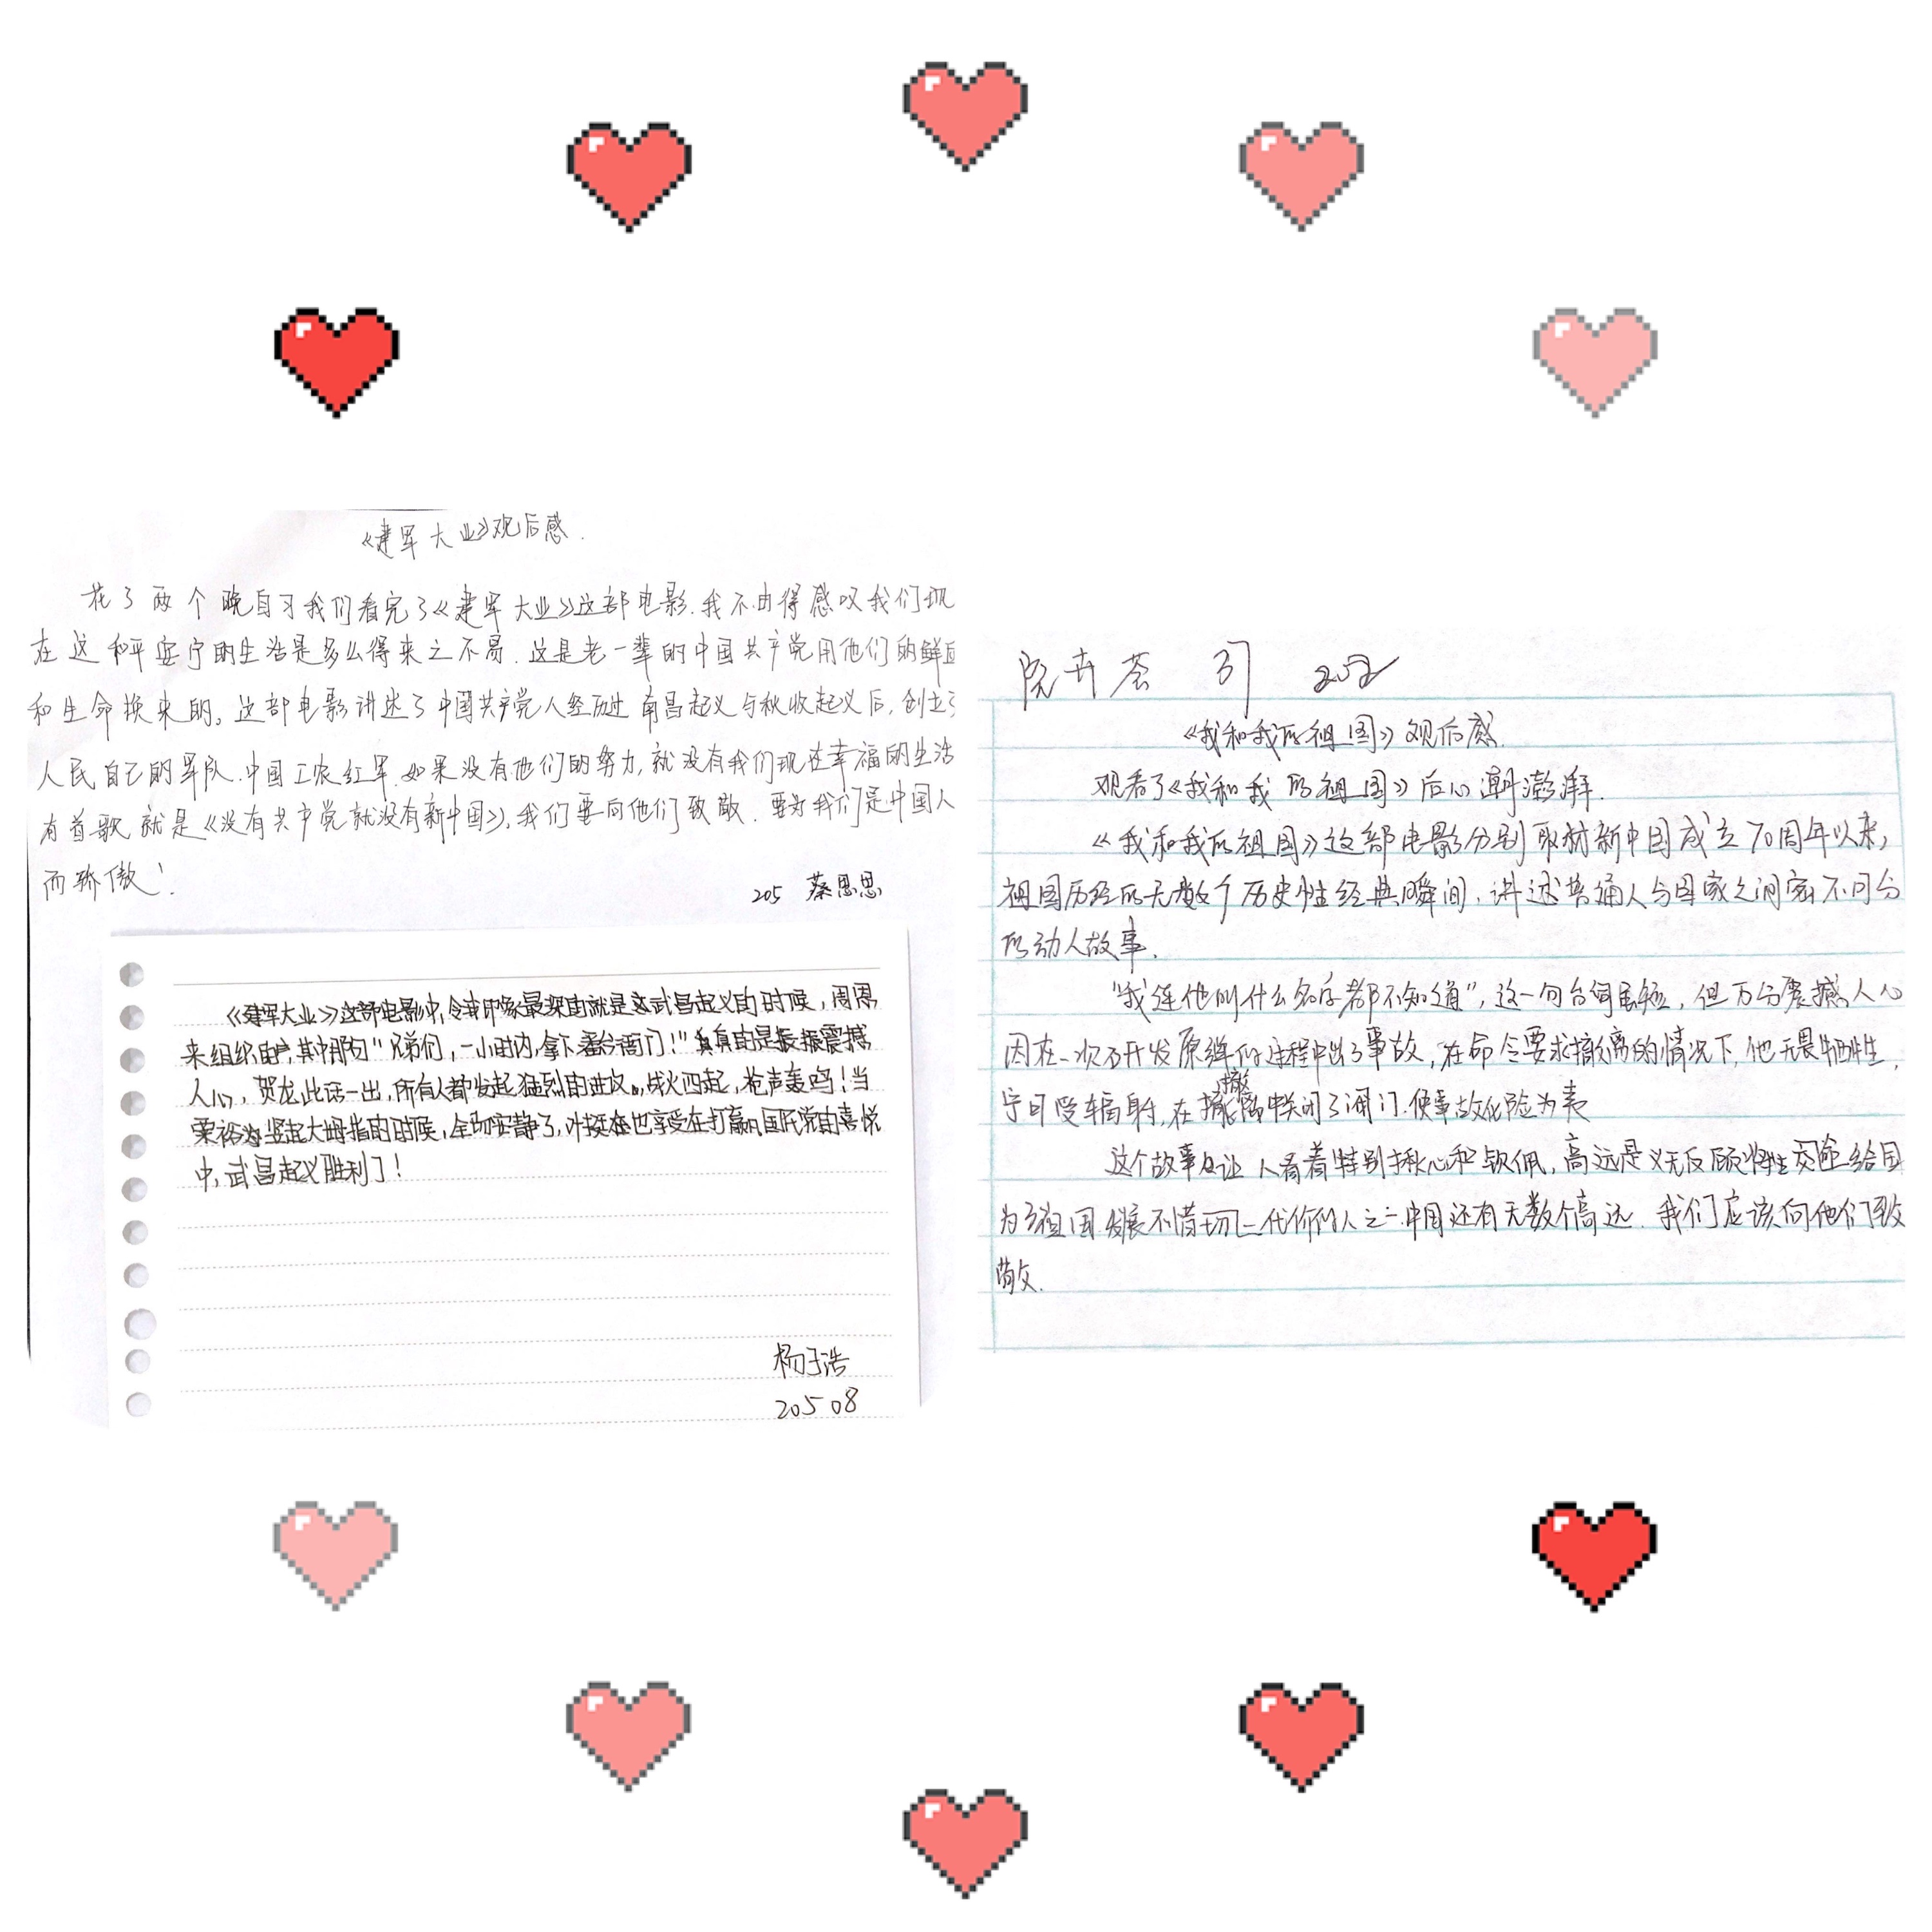 《建军大业》观后感.
花了两个晚自习我们看完了《建军大业》这部电影.我不由得感叹我们现
在这和平安宁的生活是多么得来之不易.这是老一辈的中国共产党用他们的鲜血
和生命换来的。这部电影讲述了中国共产党人经历过南昌起义与秋收起义后,创立了
人民自己的军队.中国工农红军.如果没有他们的努力,就没有我们现在幸福的生活
有首歌就是《没有共产党就没有新中国》,我们要向他们致敬.要为我们是中国人
而骄傲!
205 蔡思思
《建军大业》这部电影中,令我印象最深的就是这武昌起义的时候,周恩
来组织的,其中那句"兄弟们,一小时内,拿下番台衙门!"真的是振震撼
人心,贺龙此话一出,所有人都发起猛烈的进攻。战火四起,枪声轰鸣!当
粟裕为竖起大拇指的时候,全场安静了,叶挺也享受在打赢国民党的喜悦
中,武昌起义胜利了!
杨子浩
20508
阮卉荟 37 202
《我和我的祖国》观后感.
观看了《我和我的祖国》后心潮澎湃.
《我和我的祖国》这部电影分别取材新中国成立70周年以来,
祖国历经的无数个历史性经典瞬间.讲述普通人与国家之间密不可分
的动人故事.
"我连他叫什么名字都不知道",这一句台词虽短,但万分震撼人心
因在一次开发原弹的过程中出了事故,在命令要求撤离的情况下,他无畏牺牲,
宁可受辐射,在撤离中关闭了闸门.使事故化险为夷
这个故事让人看着特别揪心和钦佩,高远是义无反顾牺牲交给国
为了祖国发展不惜一切代价的人之一.中国还有无数个高远.我们应该向他们致
敬.